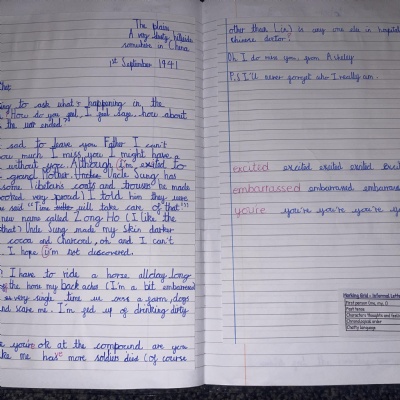 The plain
A very dusty hillside
somewhere in China
1st September 1941
ing to ask what's happening in the
How do you feel, I feel sage, how about
the war ended."
sad to leave you Father I can't
ou much I miss you I might have a
without you. Although I'm excited to
grand Mother. Unkee Uncle Sung has
some Tibetan's coats and trousers he made
looked very proud) I told him they were
said "Time will take care of that"
new name called Zong Ho (I like the
that) Uncle Sung made my skin darker
cocoa and charcoal, oh and I can't
I hope I'm not discovered.
I have to ride a horse allday long
the horse my back aches (I'm a bit embarressed
every single time we pass a farm, dogs
and wake me. I'm fed up of drinking dirty
you're ok at the compound are you
ake me has more soldiers died (of course
other than Li(u) is any one else in hospital
chinese doctor?
Oh I do miss you, from Ashley
P.S I'll never forget who I really am.
excited excited excited excited
embarrassed embarrassed embarrass
you're you're you're you're
Marking Grid - Informal Lette
First person (me, my, I)
Past tense
Characters thoughts and feelin
Chronological order
Chatty language